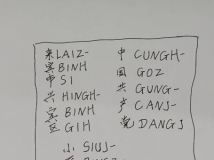 来 LAIZ-
宾 BINH
市 SI
兴 HINGH-
宾 BINH
区 GIH
中 CUNGH-
国 GOZ
共 GUNG-
产 CANJ-
党 DANGJ
小 SIUJ-